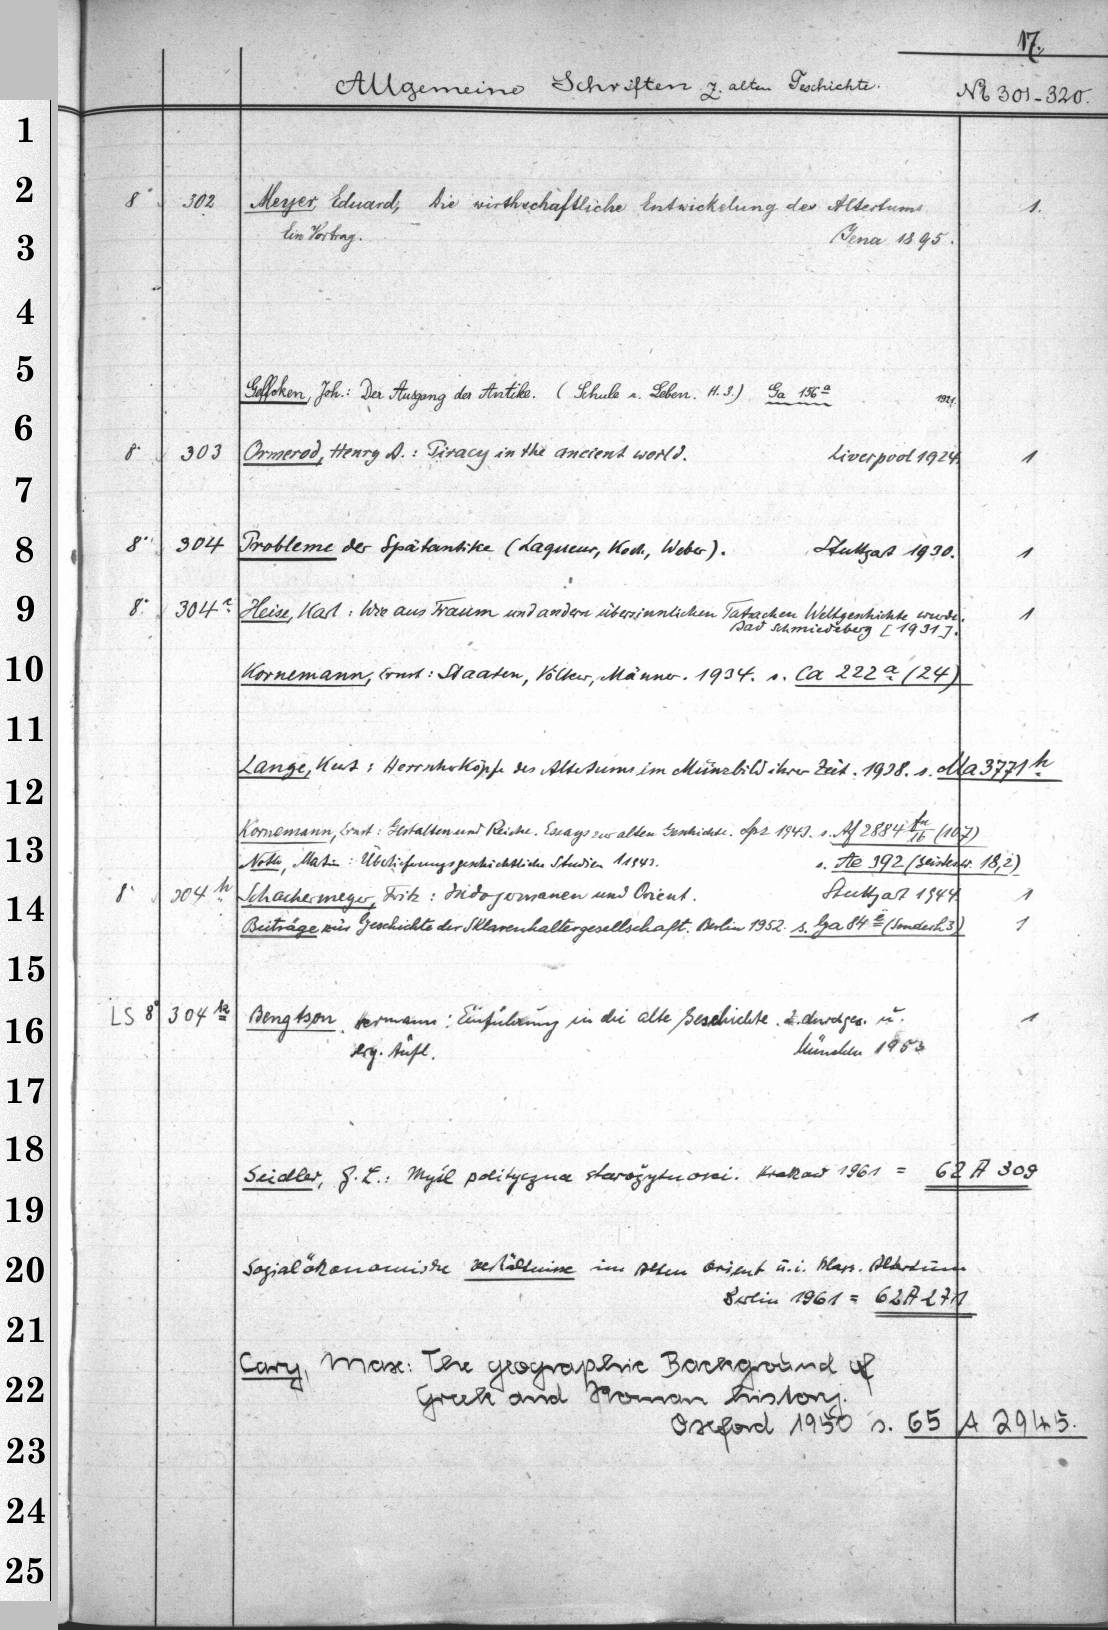 17.
Allgemeine Schriften z. alten Geschichte.
№ 301-320.
1
2
8° 302 Meyer, Eduard, Die wirthschaftliche Entwickelung des Altertums 1.
3
Ein Vortrag. Jena 1895.
4
5
Geffcken, Joh.: Der Ausgang der Antike. (Schule u. Leben. H. 3.) Ga 156ª 1921.
6
8° 303 Ormerod, Henry A.: Piracy in the ancient world. Liverpool 1924. 1
7
8
8° 304 Probleme der Spätantike (Laqueur, Koch, Weber). Stuttgart 1930. 1
9
8° 304ª Heise, Karl: Wie aus Traum und andern übersinnlichen Tatsachen Weltgeschichte wurde. 1
Bad Schmiedeberg [1931].
10
Kornemann, Ernst: Staaten, Völker, Männer. 1934. s. Ca 222ª (24)
11
12
Lange, Kurt: Herrscherköpfe des Altertums im Münzbild ihrer Zeit. 1938. s. Ma 3771 h
Kornemann, Ernst: Gestalten und Reiche. Essays zur alten Geschichte. Lpz 1943. s. Af 2884 (107)
13
Noth, Martin: Überlieferungsgeschichtliche Studien 1. 1943. s. Ae 392 (18,2)
14
8° 304 h Schachermeyer, Fritz: Indogermanen und Orient. Stuttgart 1944. 1
Beiträge zur Geschichte der Sklavenhaltergesellschaft. Berlin 1952. s. Ga 84 (Sonderh. 3) 1
15
16
LS 8° 304 Bengtson, Hermann: Einführung in die alte Geschichte. 2. durchges. u. 1
erg. Aufl. München 1953
17
18
Seidler, G. L.: Myśl polityczna starożytności. Krakow 1961 = 62 A 309
19
20
Sozialökonomische Verhältnisse im Alten Orient u. i. Klass. Altertum
Berlin 1961 = 62 A 271
21
22
Cary, Max: The geographic Background of
Greek and Roman history.
Oxford 1950 s. 65 A 2945.
23
24
25